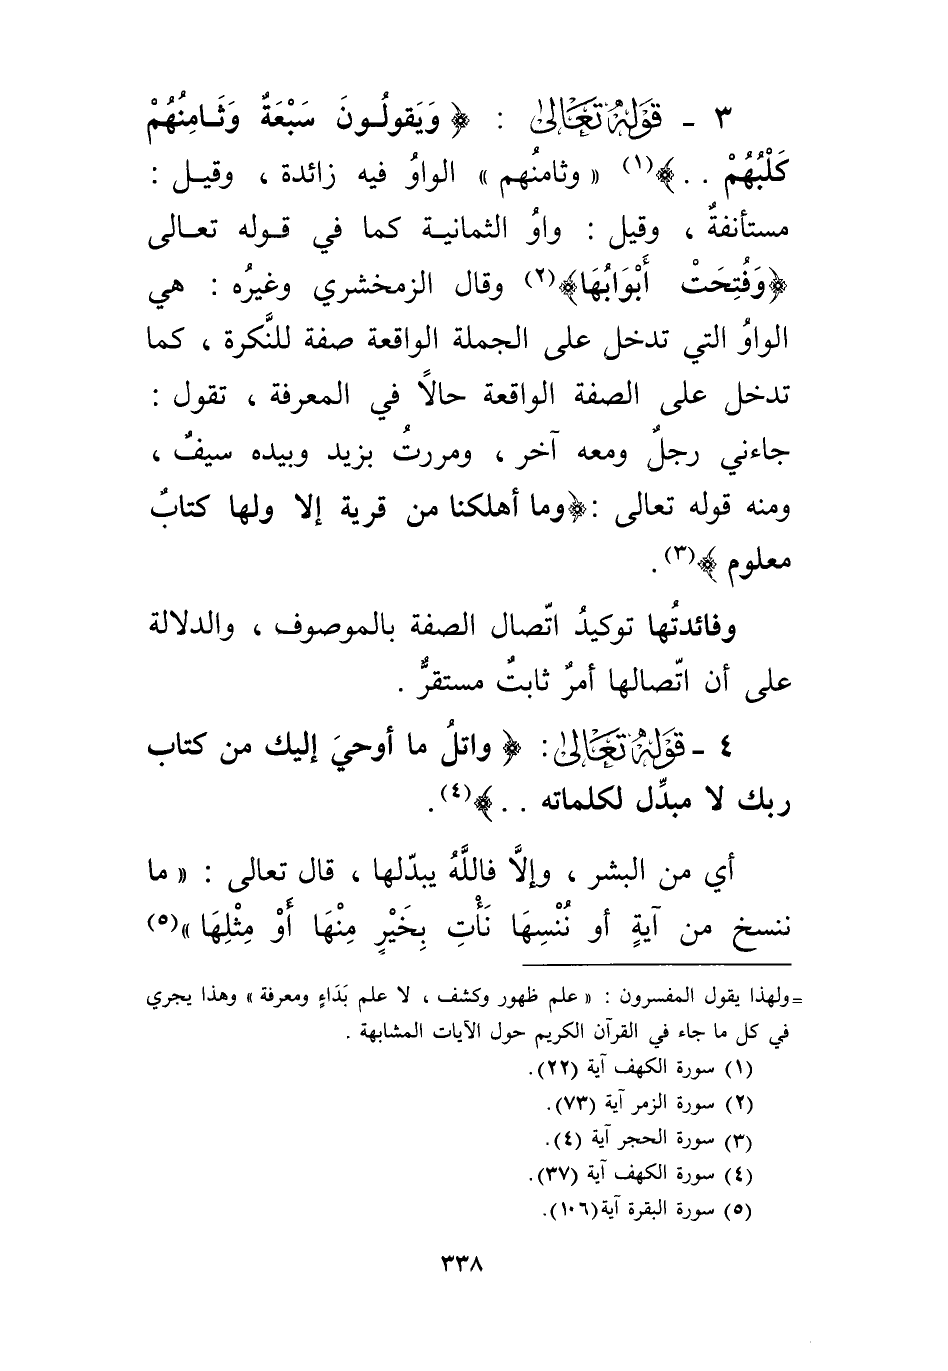 ٣ - قَوْلُهُ تَعَالَىٰ : ﴿ وَيَقولُـونَ سَبْعَةٌ وَثَـامِنُهُمْ
كَلْبُهُمْ . . ﴾(١) « وثامنُهم » الواوُ فيه زائدة ، وقيـل :
مستأنفةٌ ، وقيل : واوُ الثمانيـة كما في قـوله تعـالى
﴿وَفُتِحَتْ أَبْوَابُهَا﴾(٢) وقال الزمخشري وغيرُه : هي
الواوُ التي تدخل على الجملة الواقعة صفة للنَّكرة ، كما
تدخل على الصفة الواقعة حالاً في المعرفة ، تقول :
جاءني رجلٌ ومعه آخر ، ومررتُ بزيد وبيده سيفٌ ،
ومنه قوله تعالى :﴿وما أهلكنا من قرية إلا ولها كتابٌ
معلوم ﴾(٣) .
وفائدتُها توكيدُ اتّصال الصفة بالموصوف ، والدلالة
على أن اتّصالها أمرٌ ثابتٌ مستقرٌّ .
٤ - قَوْلُهُ تَعَالَىٰ : ﴿ واتلُ ما أوحيَ إليك من كتاب
ربك لا مبدِّل لكلماته . . ﴾(٤) .
أي من البشر ، وإلاَّ فاللَّهُ يبدّلها ، قال تعالى : « ما
ننسخ من آيةٍ أو نُنْسِهَا نَأْتِ بِخَيْرٍ مِنْهَا أَوْ مِثْلِهَا »(٥)
=ولهذا يقول المفسرون : « علم ظهور وكشف ، لا علم بَدَاءٍ ومعرفة » وهذا يجري
في كل ما جاء في القرآن الكريم حول الآيات المشابهة .
(١) سورة الكهف آية (٢٢).
(٢) سورة الزمر آية (٧٣).
(٣) سورة الحجر آية (٤).
(٤) سورة الكهف آية (٣٧).
(٥) سورة البقرة آية(١٠٦).
٣٣٨